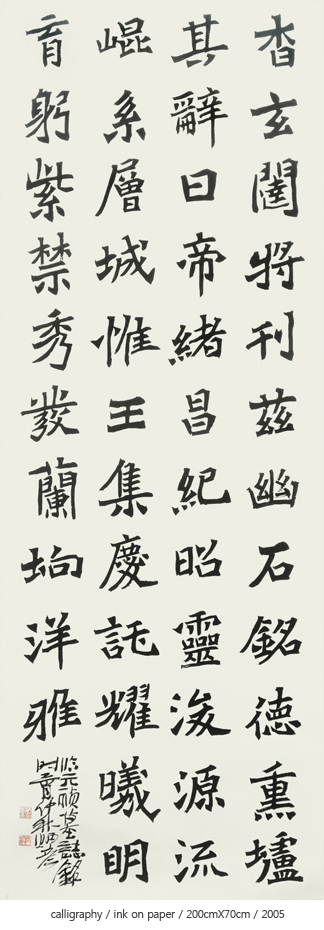 杳玄闥將刊茲幽石銘徳熏壚
其辭曰帝緒昌紀昭靈浚源流
崐系層城惟王集慶託耀曦明
育躬紫禁秀發蘭坰洋雅
臨元楨墓誌銘
calligraphy / ink on paper / 200cmX70cm / 2005